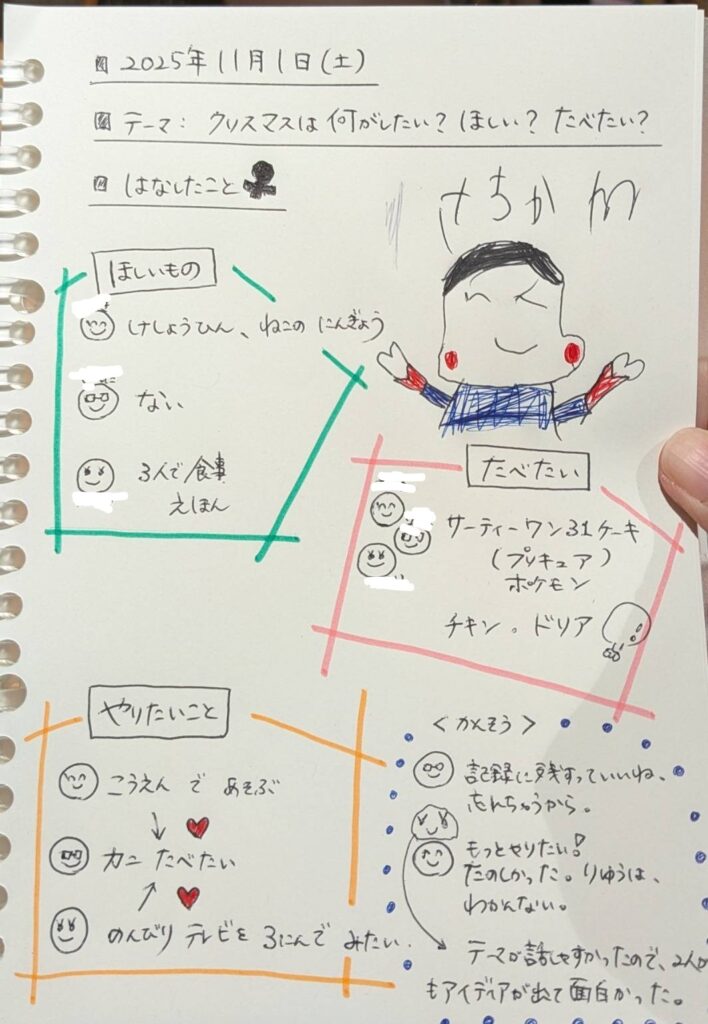 2025年11月1日(土)
テーマ: クリスマスは何がしたい? ほしい? たべたい?
はなしたこと
ほしいもの
けしょうひん、ねこの にんぎょう
ない
3人で食事
えほん
たべたい
サーティーワン31ケーキ
(プリキュア)
ポケモン
チキン。ドリア
やりたいこと
こうえん で あそぶ
カニ たべたい
のんびり テレビを 3にんで みたい.
<かんそう>
記録に残すっていいね、
ちゃうから。
もっとやりたい!
たのしかった。りゆうは、
わかんない。
テーマが話しやすかったので、2人が
もアイディアが出て面白かった。